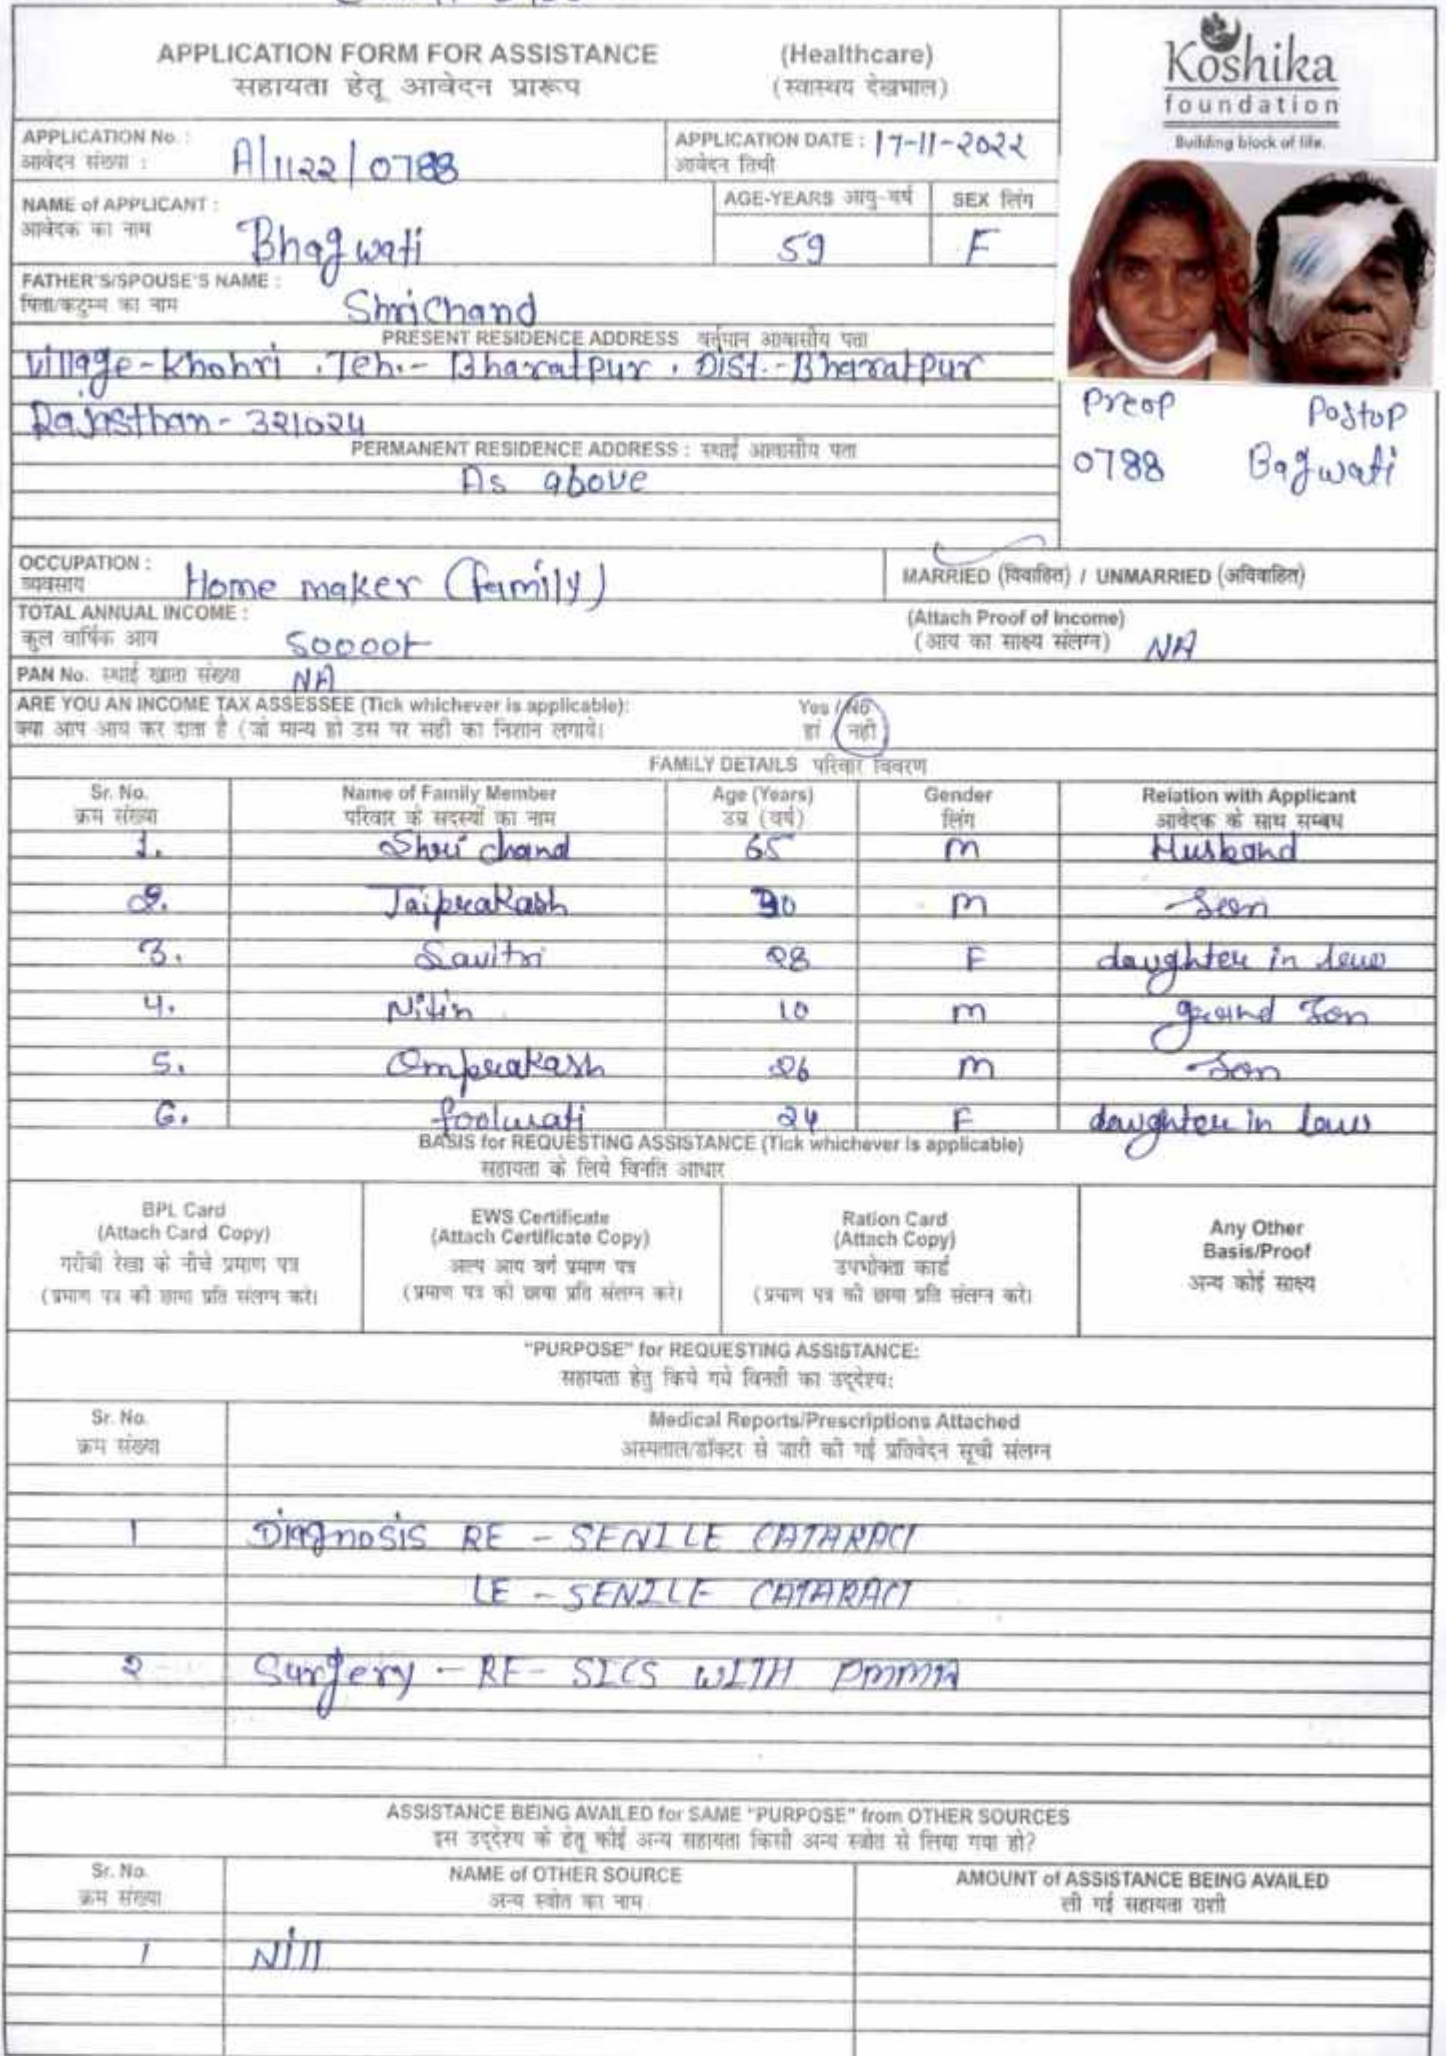 APPLICATION FORM FOR ASSISTANCE (Healthcare)
सहायता हेतू आवेदन प्रारूप (स्वास्थय देखभाल)
Koshika
foundation
Building block of life.
APPLICATION No. : A/1122/0788
आवेदन संख्या :
APPLICATION DATE : 17-11-2022
आवेदन तिथी
NAME of APPLICANT : Bhagwati
आवेदक का नाम
AGE-YEARS आयु-वर्ष SEX लिंग
59 F
FATHER'S/SPOUSE'S NAME : Shrichand
पिता/कटुम्ब का नाम
PRESENT RESIDENCE ADDRESS वर्तमान आवासीय पता
Village-Khohri . Teh.- Bharatpur . Dist.-Bharatpur
Rajasthan- 321024
PERMANENT RESIDENCE ADDRESS : स्थाई आवासीय पता
As above
Preop Postop
0788 Bagwati
OCCUPATION : Home maker (family)
व्यवसाय
MARRIED (विवाहित) / UNMARRIED (अविवाहित)
TOTAL ANNUAL INCOME :
कुल वार्षिक आय 50000
(Attach Proof of Income)
(आय का साक्ष्य संलग्न) NA
PAN No. स्थाई खाता संख्या NA
ARE YOU AN INCOME TAX ASSESSEE (Tick whichever is applicable): Yes / No
क्या आप आय कर दाता है (जो मान्य हो उस पर सही का निशान लगाये। हां / नही
FAMILY DETAILS परिवार विवरण
Sr. No. Name of Family Member Age (Years) Gender Relation with Applicant
क्रम संख्या परिवार के सदस्यों का नाम उम्र (वर्ष) लिंग आवेदक के साथ सम्बध
1. Shri chand 65 M Husband
2. Jaiprakash 30 M Son
3. Savitri 28 F daughter in law
4. Nitin 10 M grand Son
5. Omprakash 26 M Son
6. foolwati 24 F daughter in law
BASIS for REQUESTING ASSISTANCE (Tick whichever is applicable)
सहायता के लिये विनति आधार
BPL Card
(Attach Card Copy)
गरीबी रेखा के नीचे प्रमाण पत्र
(प्रमाण पत्र की छाया प्रति संलग्न करे।
EWS Certificate
(Attach Certificate Copy)
अल्प आय वर्ग प्रमाण पत्र
(प्रमाण पत्र की छाया प्रति संलग्न करे।
Ration Card
(Attach Copy)
उपभोक्ता कार्ड
(प्रमाण पत्र की छाया प्रति संलग्न करे।
Any Other
Basis/Proof
अन्य कोई साक्ष्य
"PURPOSE" for REQUESTING ASSISTANCE:
सहायता हेतु किये गये विनती का उद्देश्य:
Sr. No. Medical Reports/Prescriptions Attached
क्रम संख्या अस्पताल/डॉक्टर से जारी की गई प्रतिवेदन सूची संलग्न
1 Diagnosis RE - SENILE CATARACT
LE - SENILE CATARACT
2 Surgery - RE- SICS WITH PMMA
ASSISTANCE BEING AVAILED for SAME "PURPOSE" from OTHER SOURCES
इस उद्देश्य के हेतू कोई अन्य सहायता किसी अन्य स्त्रोत से लिया गया हो?
Sr. No. NAME of OTHER SOURCE AMOUNT of ASSISTANCE BEING AVAILED
क्रम संख्या अन्य स्त्रोत का नाम ली गई सहायता राशी
1 Nill